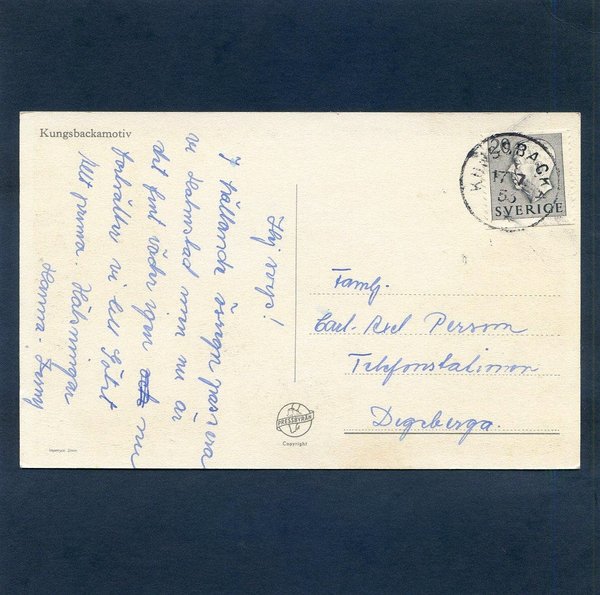 Kungsbackamotiv
Hej svejs!
I hållande ösregn passera
vi Halmstad men nu är
det fint väder igen nu
fortsätter vi till
Allt prima. Hälsningar
Hanna - Jenny
20
KUNGSBACKA
17 7
SVERIGE
Familj.
Carl-Axel Persson
Telefonstationen
Degeberga.
PRESSBYRÅN
Copyright